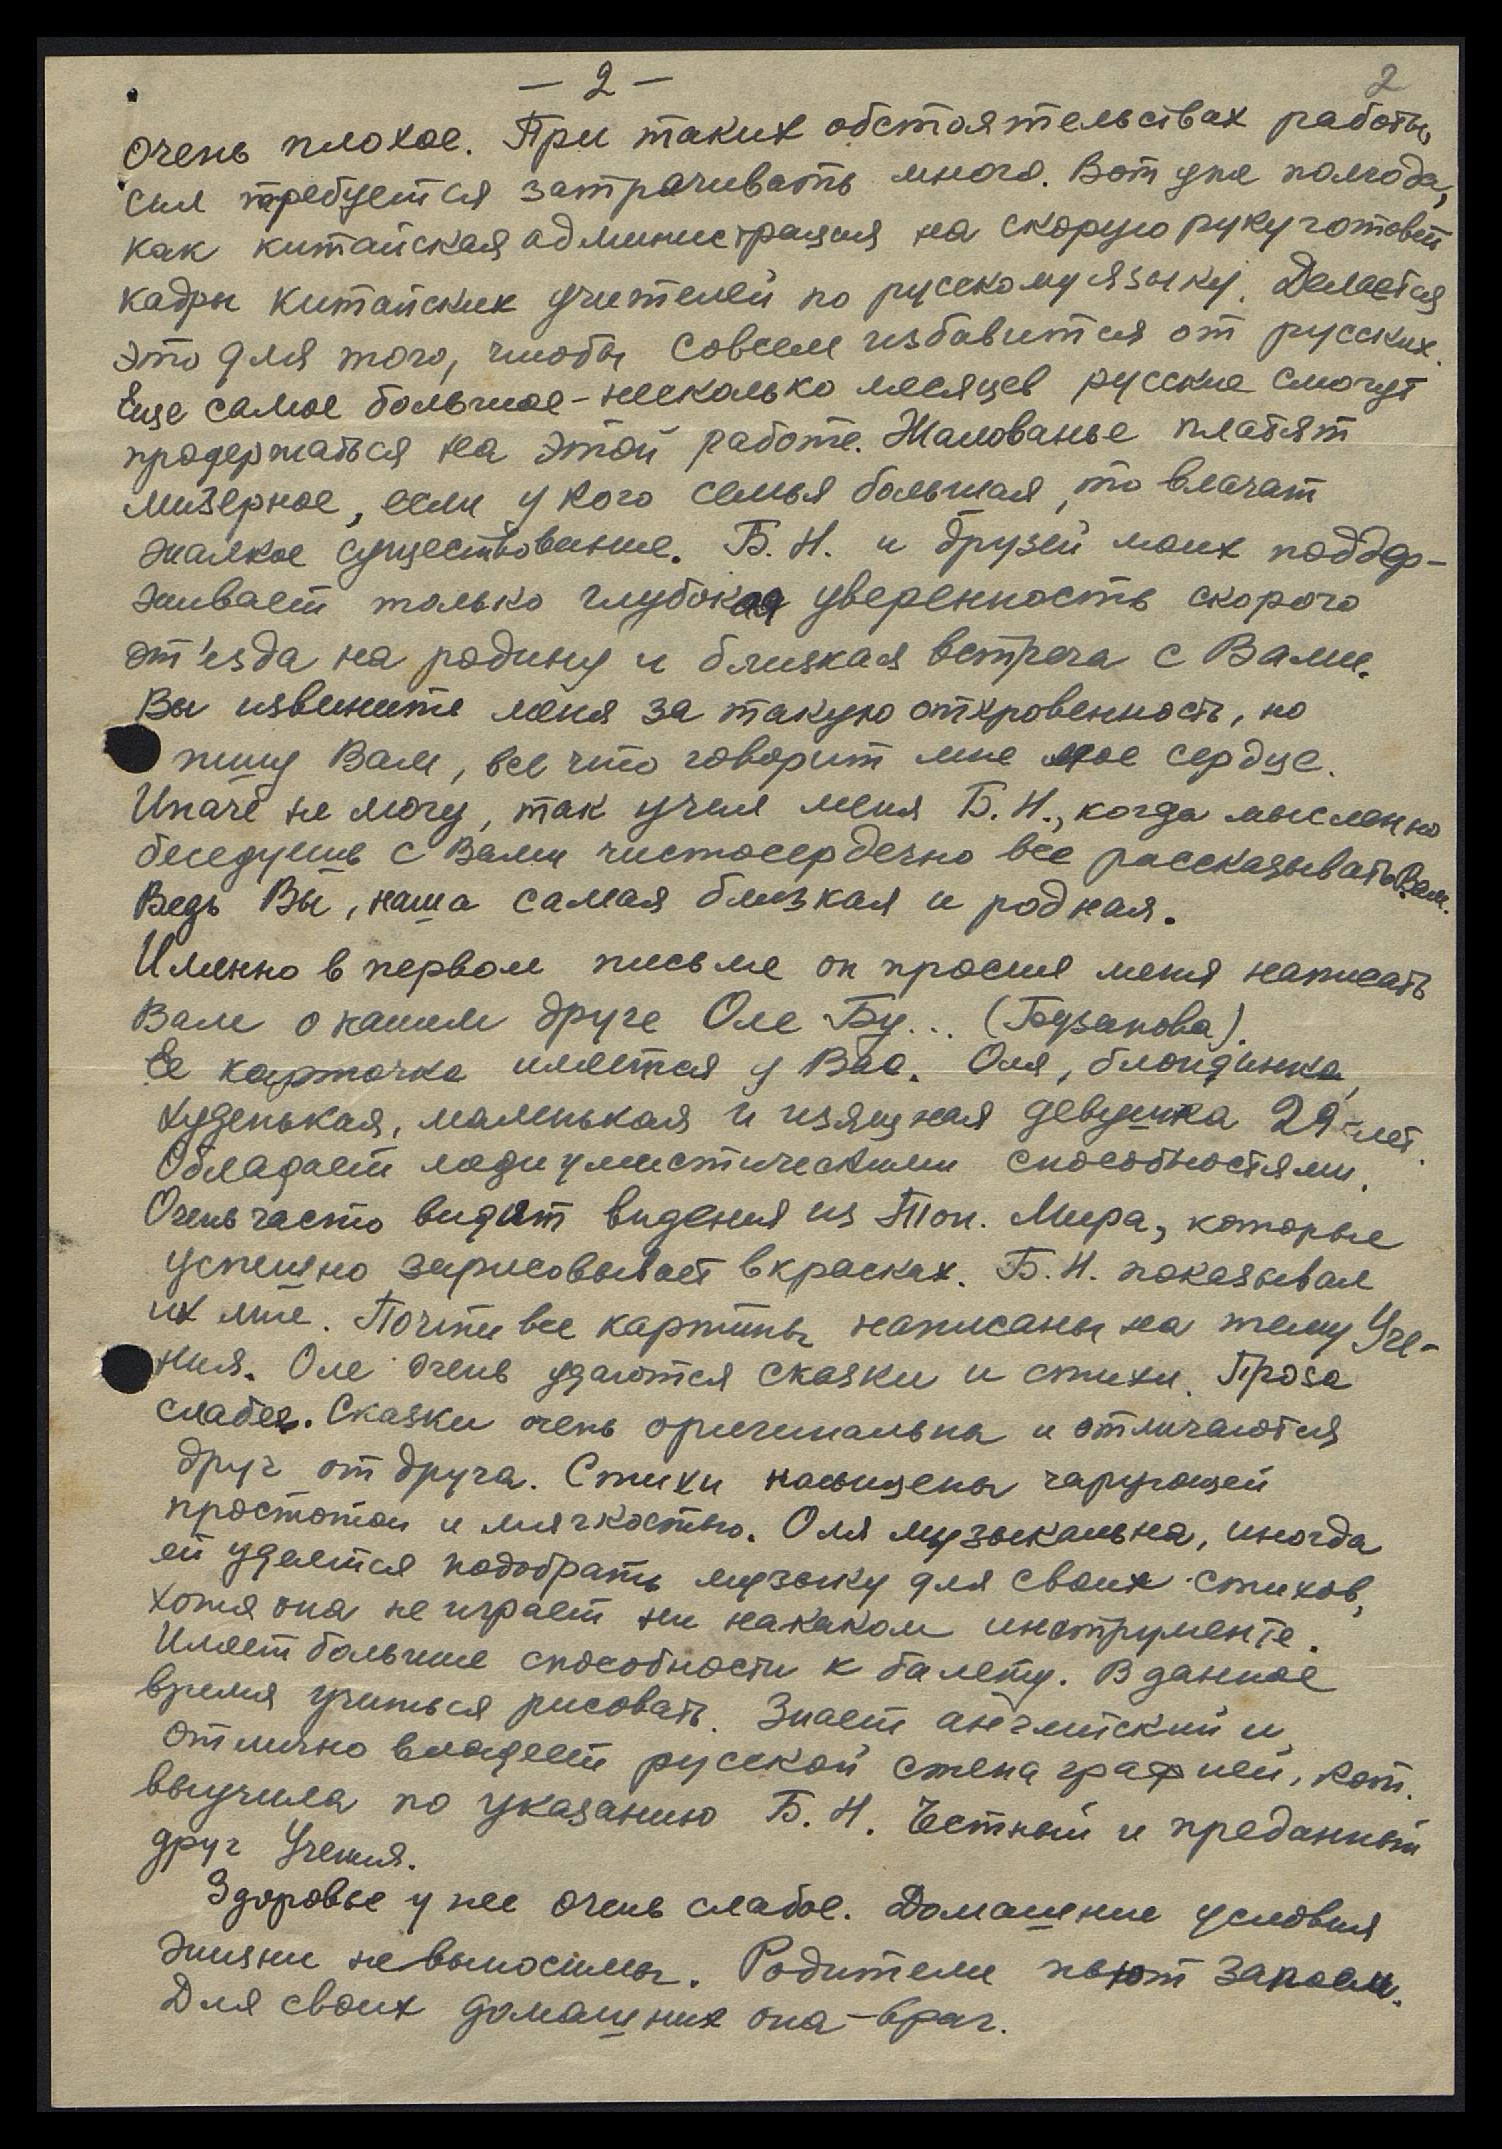 – 2 –
2
очень плохое. При таких обстоятельствах работы,
сил требуется затрачивать много. Вот уже полгода,
как китайская администрация на скорую руку готовит
кадры китайских учителей по русскому языку. Делается
это для того, чтобы совсем избавится от русских.
Еще самое большое – несколько месяцев русские смогут
продержаться на этой работе. Жалованье платят
мизерное, если у кого семья большая, то влачат
жалкое существование. Б. Н. и друзей моих поддер-
живает только глубокая уверенность скорого
от'езда на родину и близкая встреча с Вами.
Вы извините меня за такую откровенность, но
пишу Вам, все что говорит мне мое сердце.
Иначе не могу, так учил меня Б. Н., когда мысленно
беседуешь с Вами чистосердечно все рассказывать Вам.
Ведь Вы, наша самая близкая и родная.
Именно в первом письме он просил меня написать
Вам о нашем друге Оле Бу... (Бузанова).
Ее карточка имеется у Вас. Оля, блондинка,
худенькая, маленькая и изящная девушка 29 – лет.
Обладает медиумистическими способностями.
Очень часто видит видения из Тон. Мира, которые
успешно зарисовывает в красках. Б. Н. показывал
их мне. Почти все картины написаны на тему Уче-
ния. Оле очень удаются сказки и стихи. Проза
слабея. Сказки очень оригинальны и отличаются
друг от друга. Стихи насыщены чарующей
простотой и мягкостью. Оля музыкальна, иногда
ей удается подобрать музыку для своих стихов,
хотя она не играет ни накаком инструменте.
Имеет большие способности к балету. В данное
время учиться рисовать. Знает английский и
отлично владеет русской стенаграфией, кот.
выучила по указанию Б. Н. Честный и преданный
друг Учения.
Здоровье у нее очень слабое. Домашние условия
жизни невыносимы. Родители пьют запоем.
Для своих домашних она – враг.